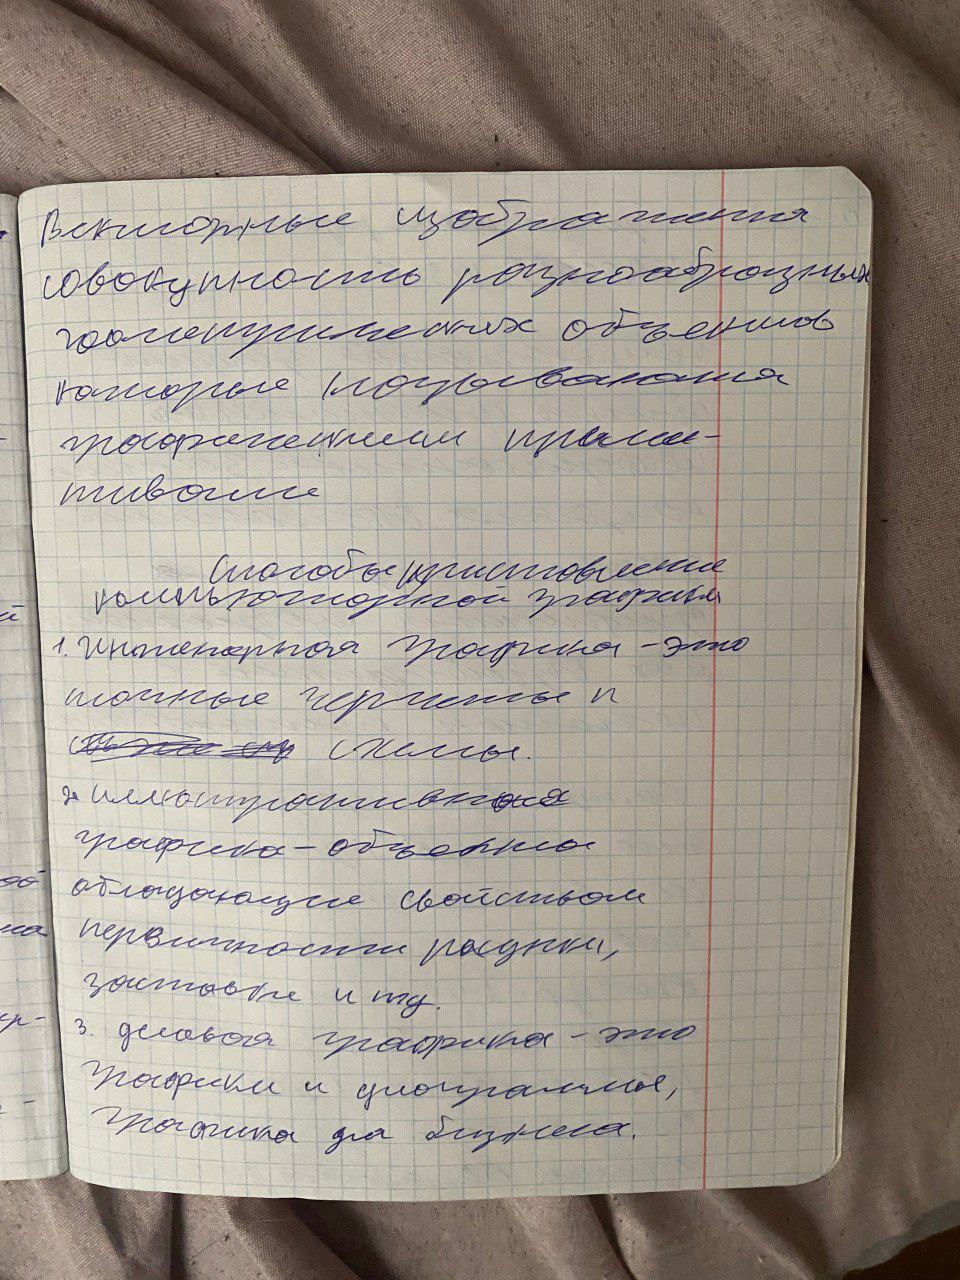 Векторные изображения
совокупность разнообразных
геометрических объектов
которые называются
графическими прими-
тивами
Способы представления
компьютерной графики
1. Инженерная графика - это
точные чертежы и
схемы.
2. иллюстративная
графика - объекты
обладающие свойством
первичности рисунки,
заставки и тд.
3. деловая графика - это
графики и диаграммы,
графика для бизнеса.